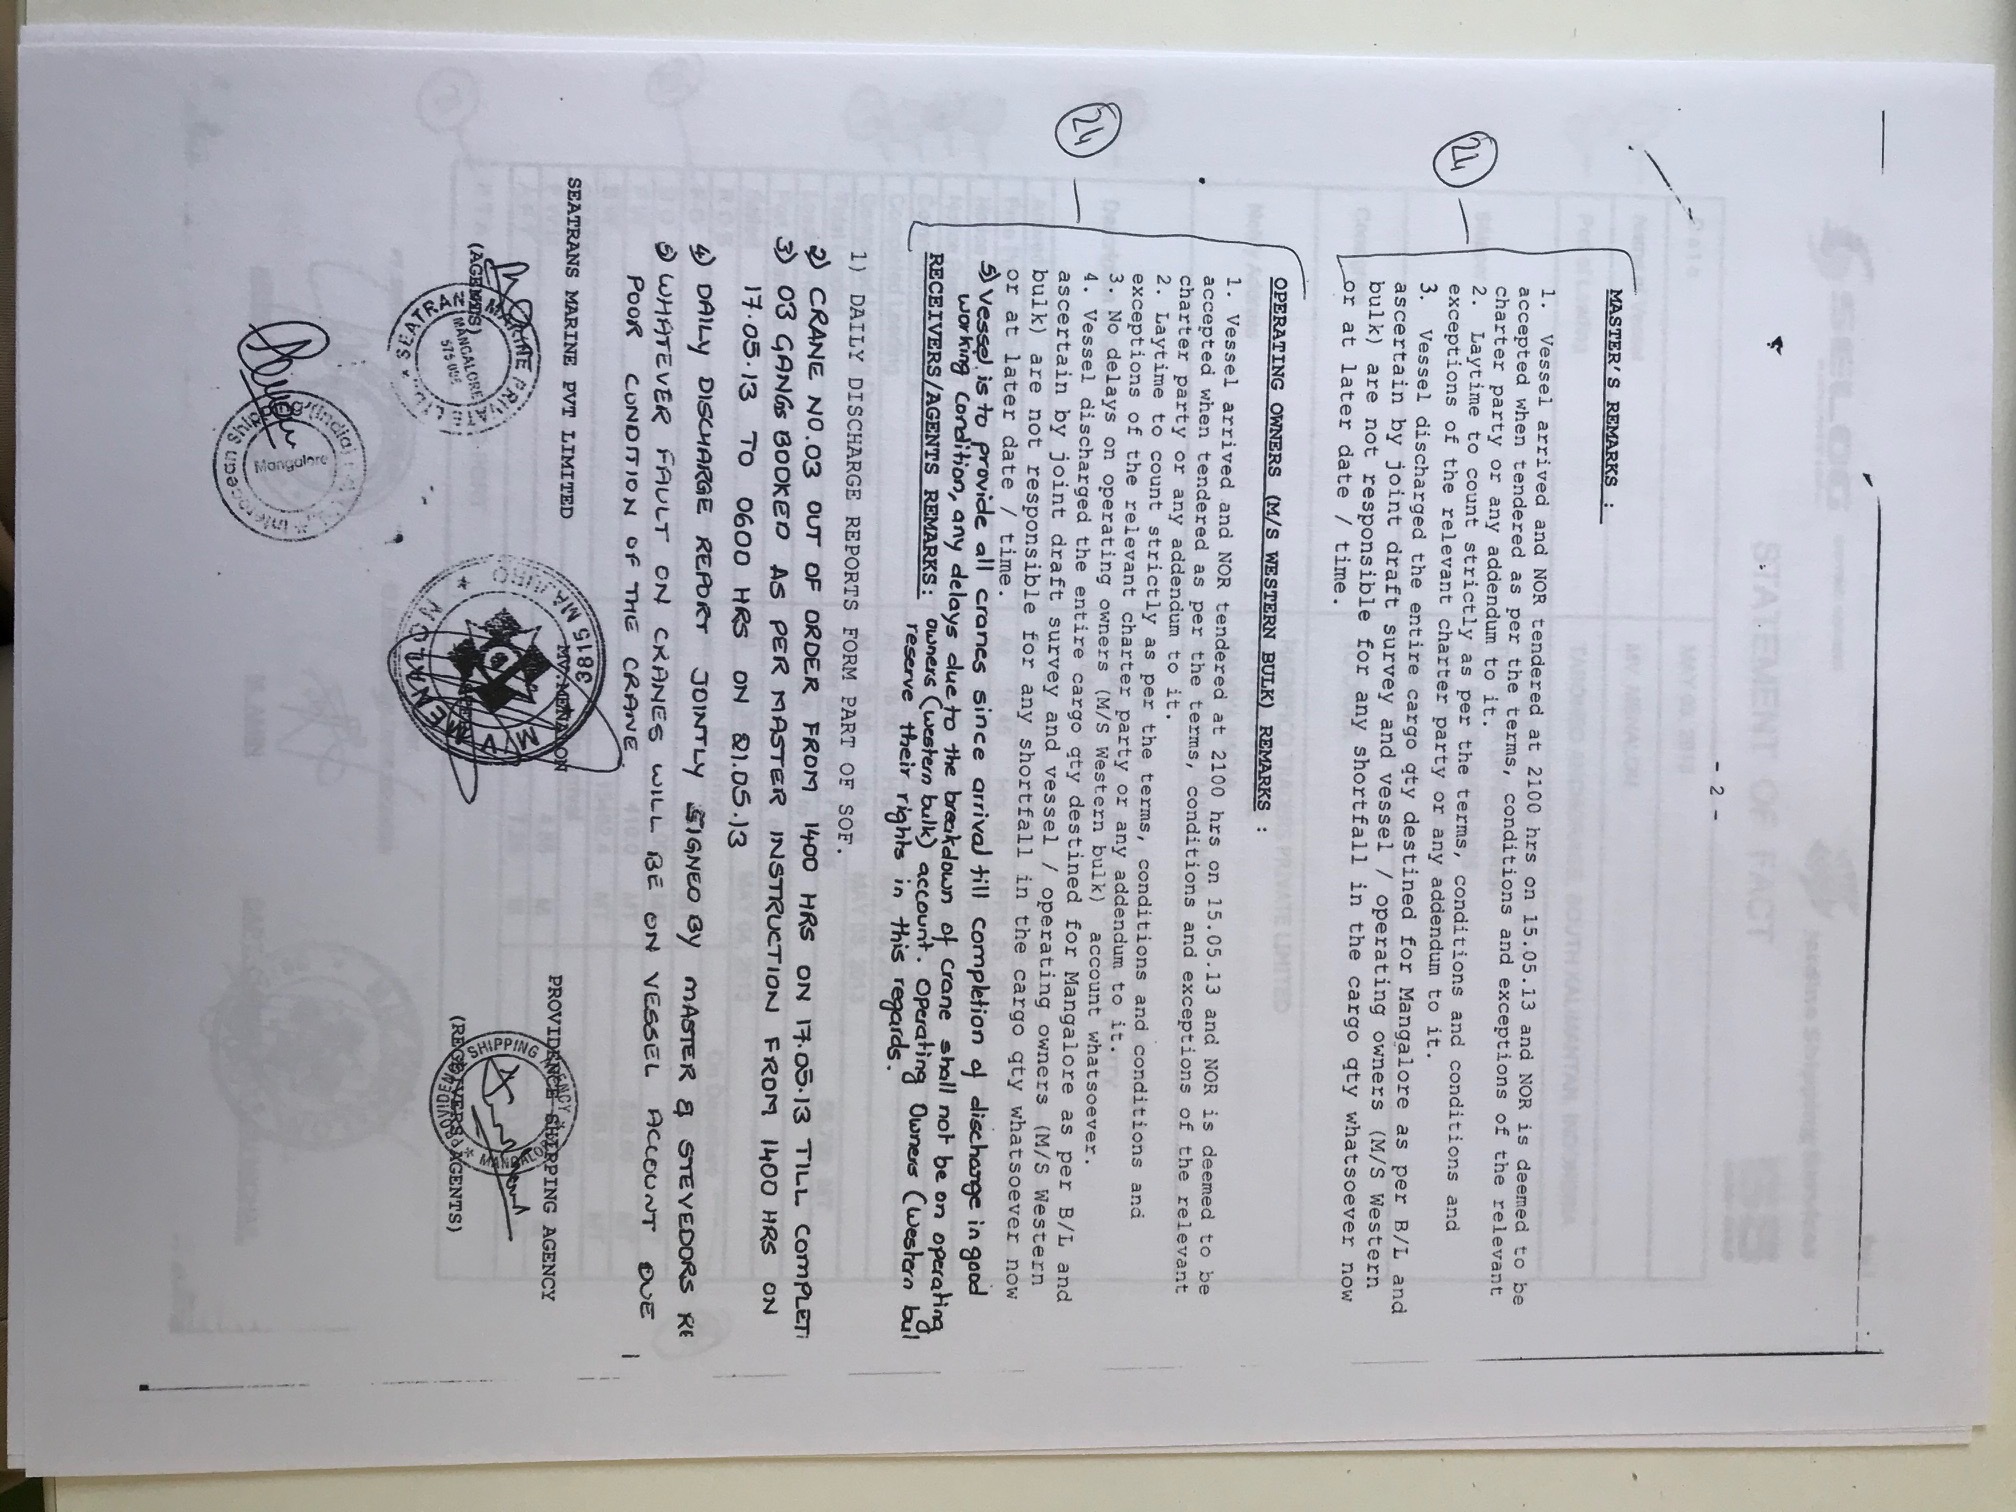 - 2 -
MASTER'S REMARKS :
1. Vessel arrived and NOR tendered at 2100 hrs on 15.05.13 and NOR is deemed to be
accepted when tendered as per the terms, conditions and exceptions of the relevant
charter party or any addendum to it.
2. Laytime to count strictly as per the terms, conditions and conditions and
exceptions of the relevant charter party or any addendum to it.
3. Vessel discharged the entire cargo qty destined for Mangalore as per B/L and
ascertain by joint draft survey and vessel / operating owners (M/S Western
bulk) are not responsible for any shortfall in the cargo qty whatsoever now
or at later date / time.
24
OPERATING OWNERS (M/S WESTERN BULK) REMARKS :
1. Vessel arrived and NOR tendered at 2100 hrs on 15.05.13 and NOR is deemed to be
accepted when tendered as per the terms, conditions and exceptions of the relevant
charter party or any addendum to it.
2. Laytime to count strictly as per the terms, conditions and conditions and
exceptions of the relevant charter party or any addendum to it.
3. No delays on operating owners (M/S Western bulk) account whatsoever.
4. Vessel discharged the entire cargo qty destined for Mangalore as per B/L and
ascertain by joint draft survey and vessel / operating owners (M/S Western
bulk) are not responsible for any shortfall in the cargo qty whatsoever now
or at later date / time.
24
5) Vessel is to provide all cranes since arrival till completion of discharge in good
working condition, any delays due to the breakdown of crane shall not be on operating
owners (western bulk) account. Operating Owners (Western bul
reserve their rights in this regards.
RECEIVERS/AGENTS REMARKS:
1) DAILY DISCHARGE REPORTS FORM PART OF SOF.
2) CRANE NO.03 OUT OF ORDER FROM 1400 HRS ON 17.05.13 TILL COMPLETI
3) 03 GANGS BOOKED AS PER MASTER INSTRUCTION FROM 1400 HRS ON
17.05.13 TO 0600 HRS ON 21.05.13
4) DAILY DISCHARGE REPORT JOINTLY SIGNED BY MASTER & STEVEDORS RE
5) WHATEVER FAULT ON CRANES WILL BE ON VESSEL ACCOUNT DUE
POOR CONDITION OF THE CRANE.
SEATRANS MARINE PVT LIMITED
MV.MENALON
PROVIDENCE SHIPPING AGENCY
(AGENTS)
(RECEIVERS AGENTS)
SEATRANS MARINE PRIVATE LTD.
MANGALORE
575 001
M/V MENALON
3815 MAJURO
PROVIDENCE SHIPPING AGENCY
MANGALORE
Interocean Shipping (India)
Mangalore
STATEMENT OF FACT
SELOG
Jardine Shipping Services